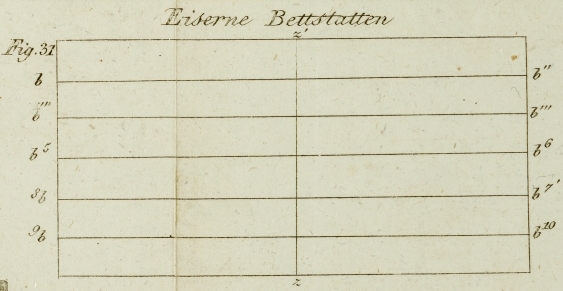 Eiserne Bettstatten
z'
Fig. 31
b b"
b"" b"'
b⁵ b⁶
8b b⁷'
9b b¹⁰
z